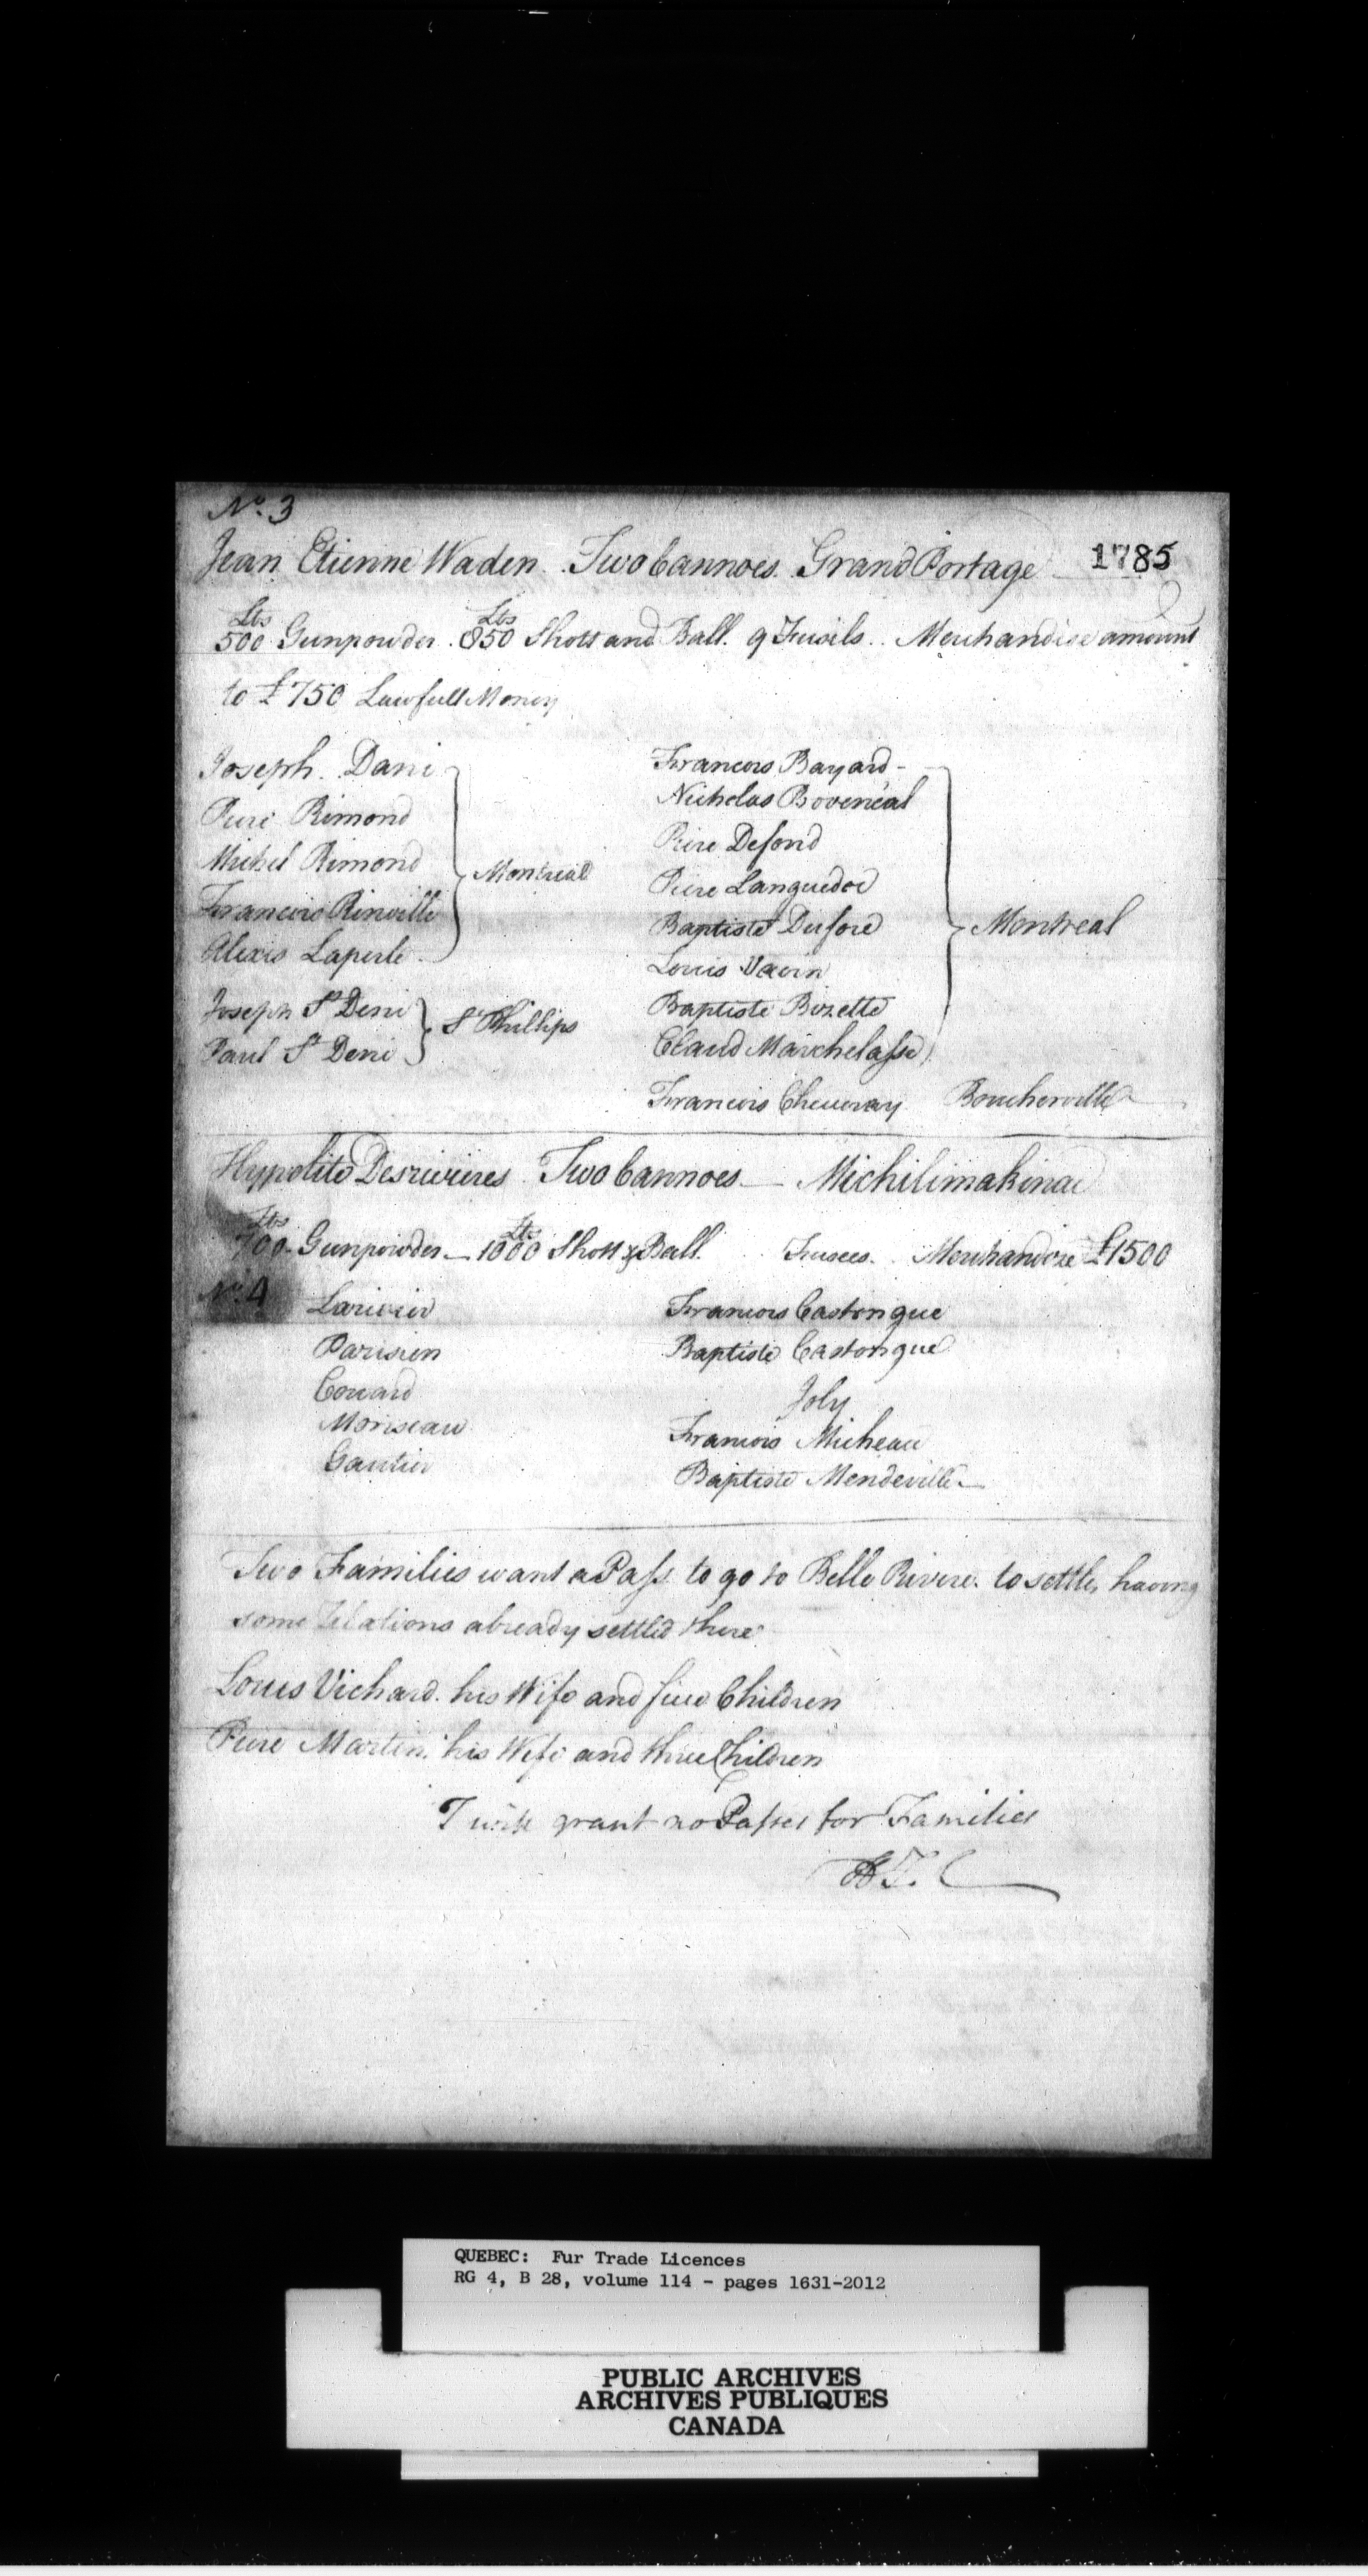 No. 3
Jean Etienne Waden. Two Cannoes. Grand Portage 1785
Lbs Lbs
500 Gunpowder. 850 Shott and Ball. 9 Fusils.. Merchandise amount
to £750 Lawfull Money
Joseph. Dani
Piere Rimond
Michel Rimond
Francois Rinville
Alexis Laperle
Montreal
Joseph St Deni
Paul St Deni
St Phillips
Francois Bayard
Nicholas Boveneal
Piere Defond
Piere Languedoc
Baptiste Dufore
Louis Vavin
Baptiste Bizette
Claud Marchelasse
Montreal
Francois Cheuvray Boucherville
Hypolite Desrivieres Two Cannoes — Michilimakinac
Lbs Lbs
700 Gunpowder — 1000 Shott & Ball. Fusees. Merchandize £1500
No. 4
Larivier
Parisien
Couard
Moriseau
Gautier
Francois Castongue
Baptiste Castongue
Joly
Francois Micheau
Baptiste Mendeville
Two Families want a Pass to go to Belle Rivere. to settle, having
some relations already settled there
Louis Vichard. his Wife and five Children
Piere Martin. his Wife and three Children
I will grant no Passes for Families
QUEBEC: Fur Trade Licences
RG 4, B 28, volume 114 - pages 1631-2012
PUBLIC ARCHIVES
ARCHIVES PUBLIQUES
CANADA